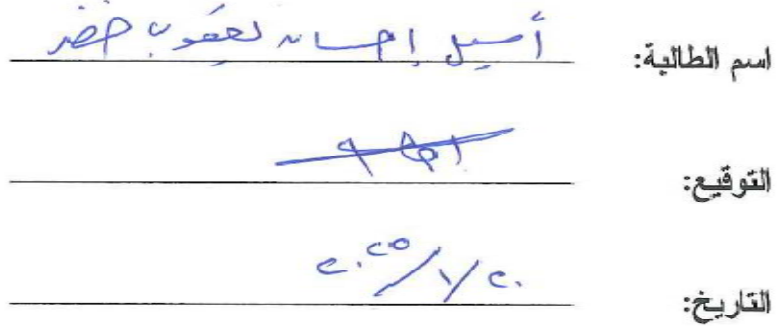 اسم الطالبة: أسيل إحسان يعقوب خضر
التوقيع:
التاريخ: ٢٠/١/٢٠٢٥